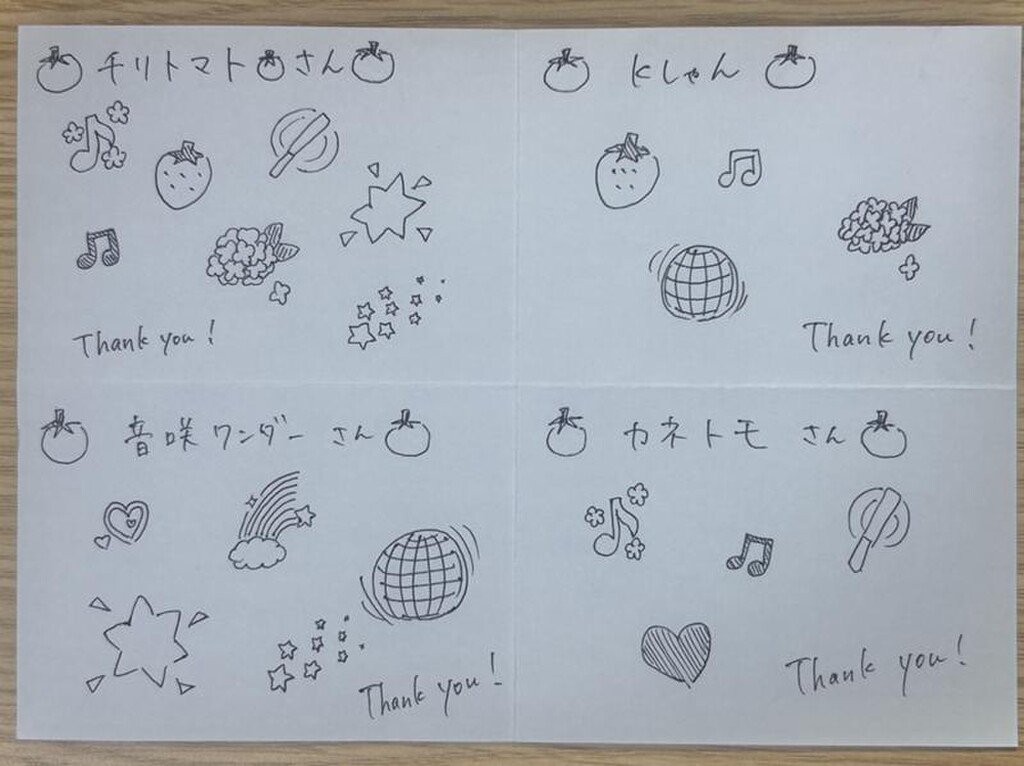 チリトマトさん
Thank you!
Kしゃん
Thank you!
音咲ワンダー さん
Thank you!
カネトモ さん
Thank you!